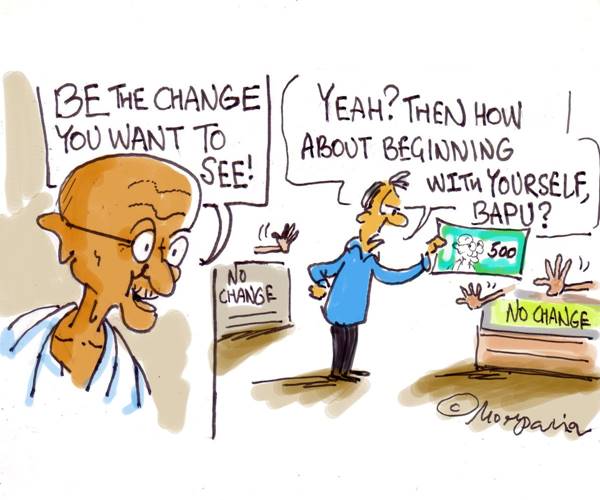 BE THE CHANGE
YOU WANT TO
SEE!
YEAH? THEN HOW
ABOUT BEGINNING
WITH YOURSELF,
BAPU?
500
NO
CHANGE
NO CHANGE
© Morparia